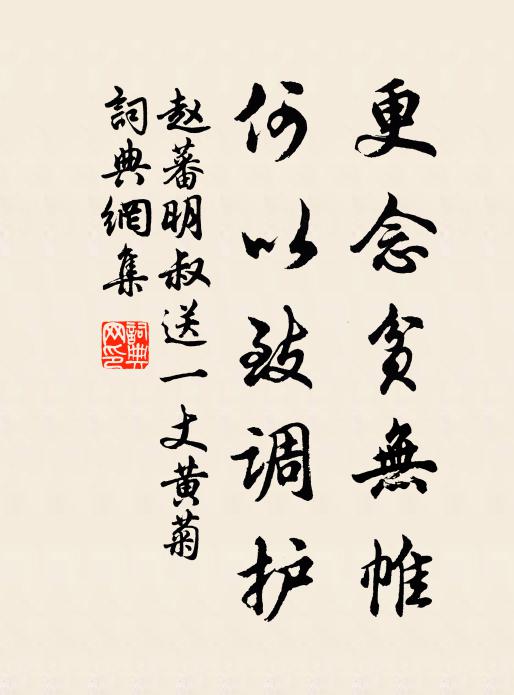 更念贫無帷
何以致调护
赵蕃明叔送一丈黄菊
詞典網集
詞典網印